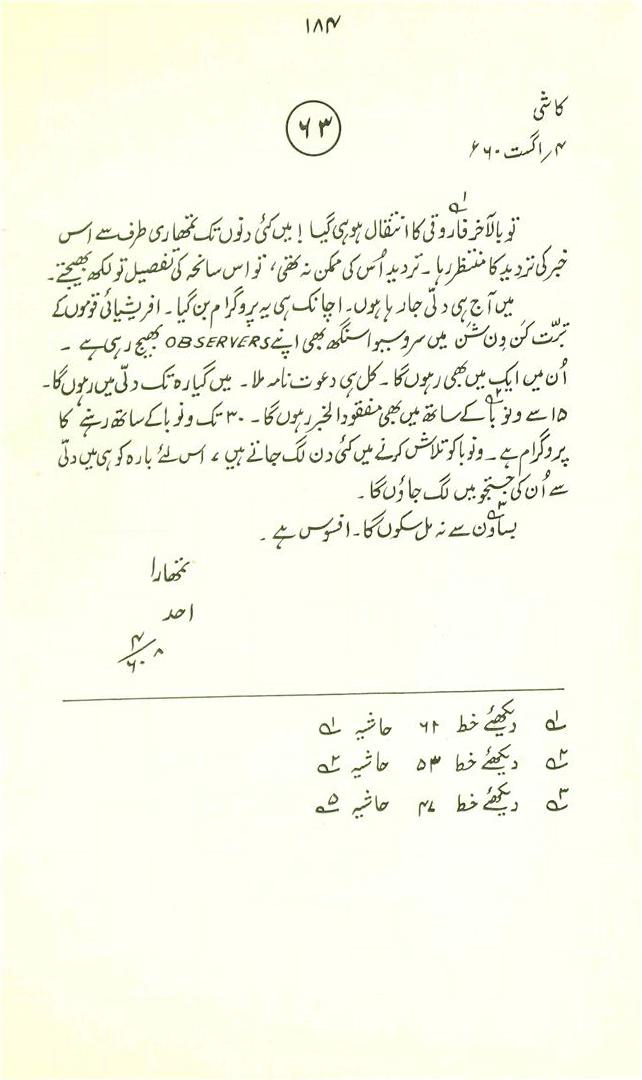 ۱۸۴
کاشی
۶۳
۴؍اگست ۶۶۰ء
تو بالآخر فاروقی۱؎ کا انتقال ہو ہی گیا ! میں کئی دنوں تک تمھاری طرف سے اس
خبر کی تردید کا منتظر رہا ۔ تردید اُس کی ممکن نہ تھی، تو اس سانحہ کی تفصیل تو لکھ بھیجتے۔
میں آج ہی دلّی جا رہا ہوں۔ اچانک ہی یہ پروگرام بن گیا ۔ افریشیائی قوموں کے
تبّت کَن وِن شَن میں سرو سیوا سنگھ بھی اپنے OBSERVERS بھیج رہی ہے ۔
اُن میں ایک میں بھی رہوں گا ۔ کل ہی دعوت نامہ ملا ۔ میں گیارہ تک دلّی میں رہوں گا۔
۱۵ سے ونوبا۲؎ کے ساتھ میں بھی مفقود الخبر رہوں گا ۔ ۳۰ تک ونوبا کے ساتھ رہنے کا
پروگرام ہے ۔ ونوبا کو تلاش کرنے میں کئی دن لگ جاتے ہیں ، اس لئے بارہ کو ہی میں دلّی
سے اُن کی جستجو میں لگ جاؤں گا ۔
بساون۳؎ سے نہ مل سکوں گا۔ افسوس ہے ۔
تمھارا
احد
۴
۶۰ ۸
۱؎ دیکھئے خط ۶۲ حاشیہ ۱؎
۲؎ دیکھئے خط ۵۳ حاشیہ ۲؎
۳؎ دیکھئے خط ۴۷ حاشیہ ۵؎